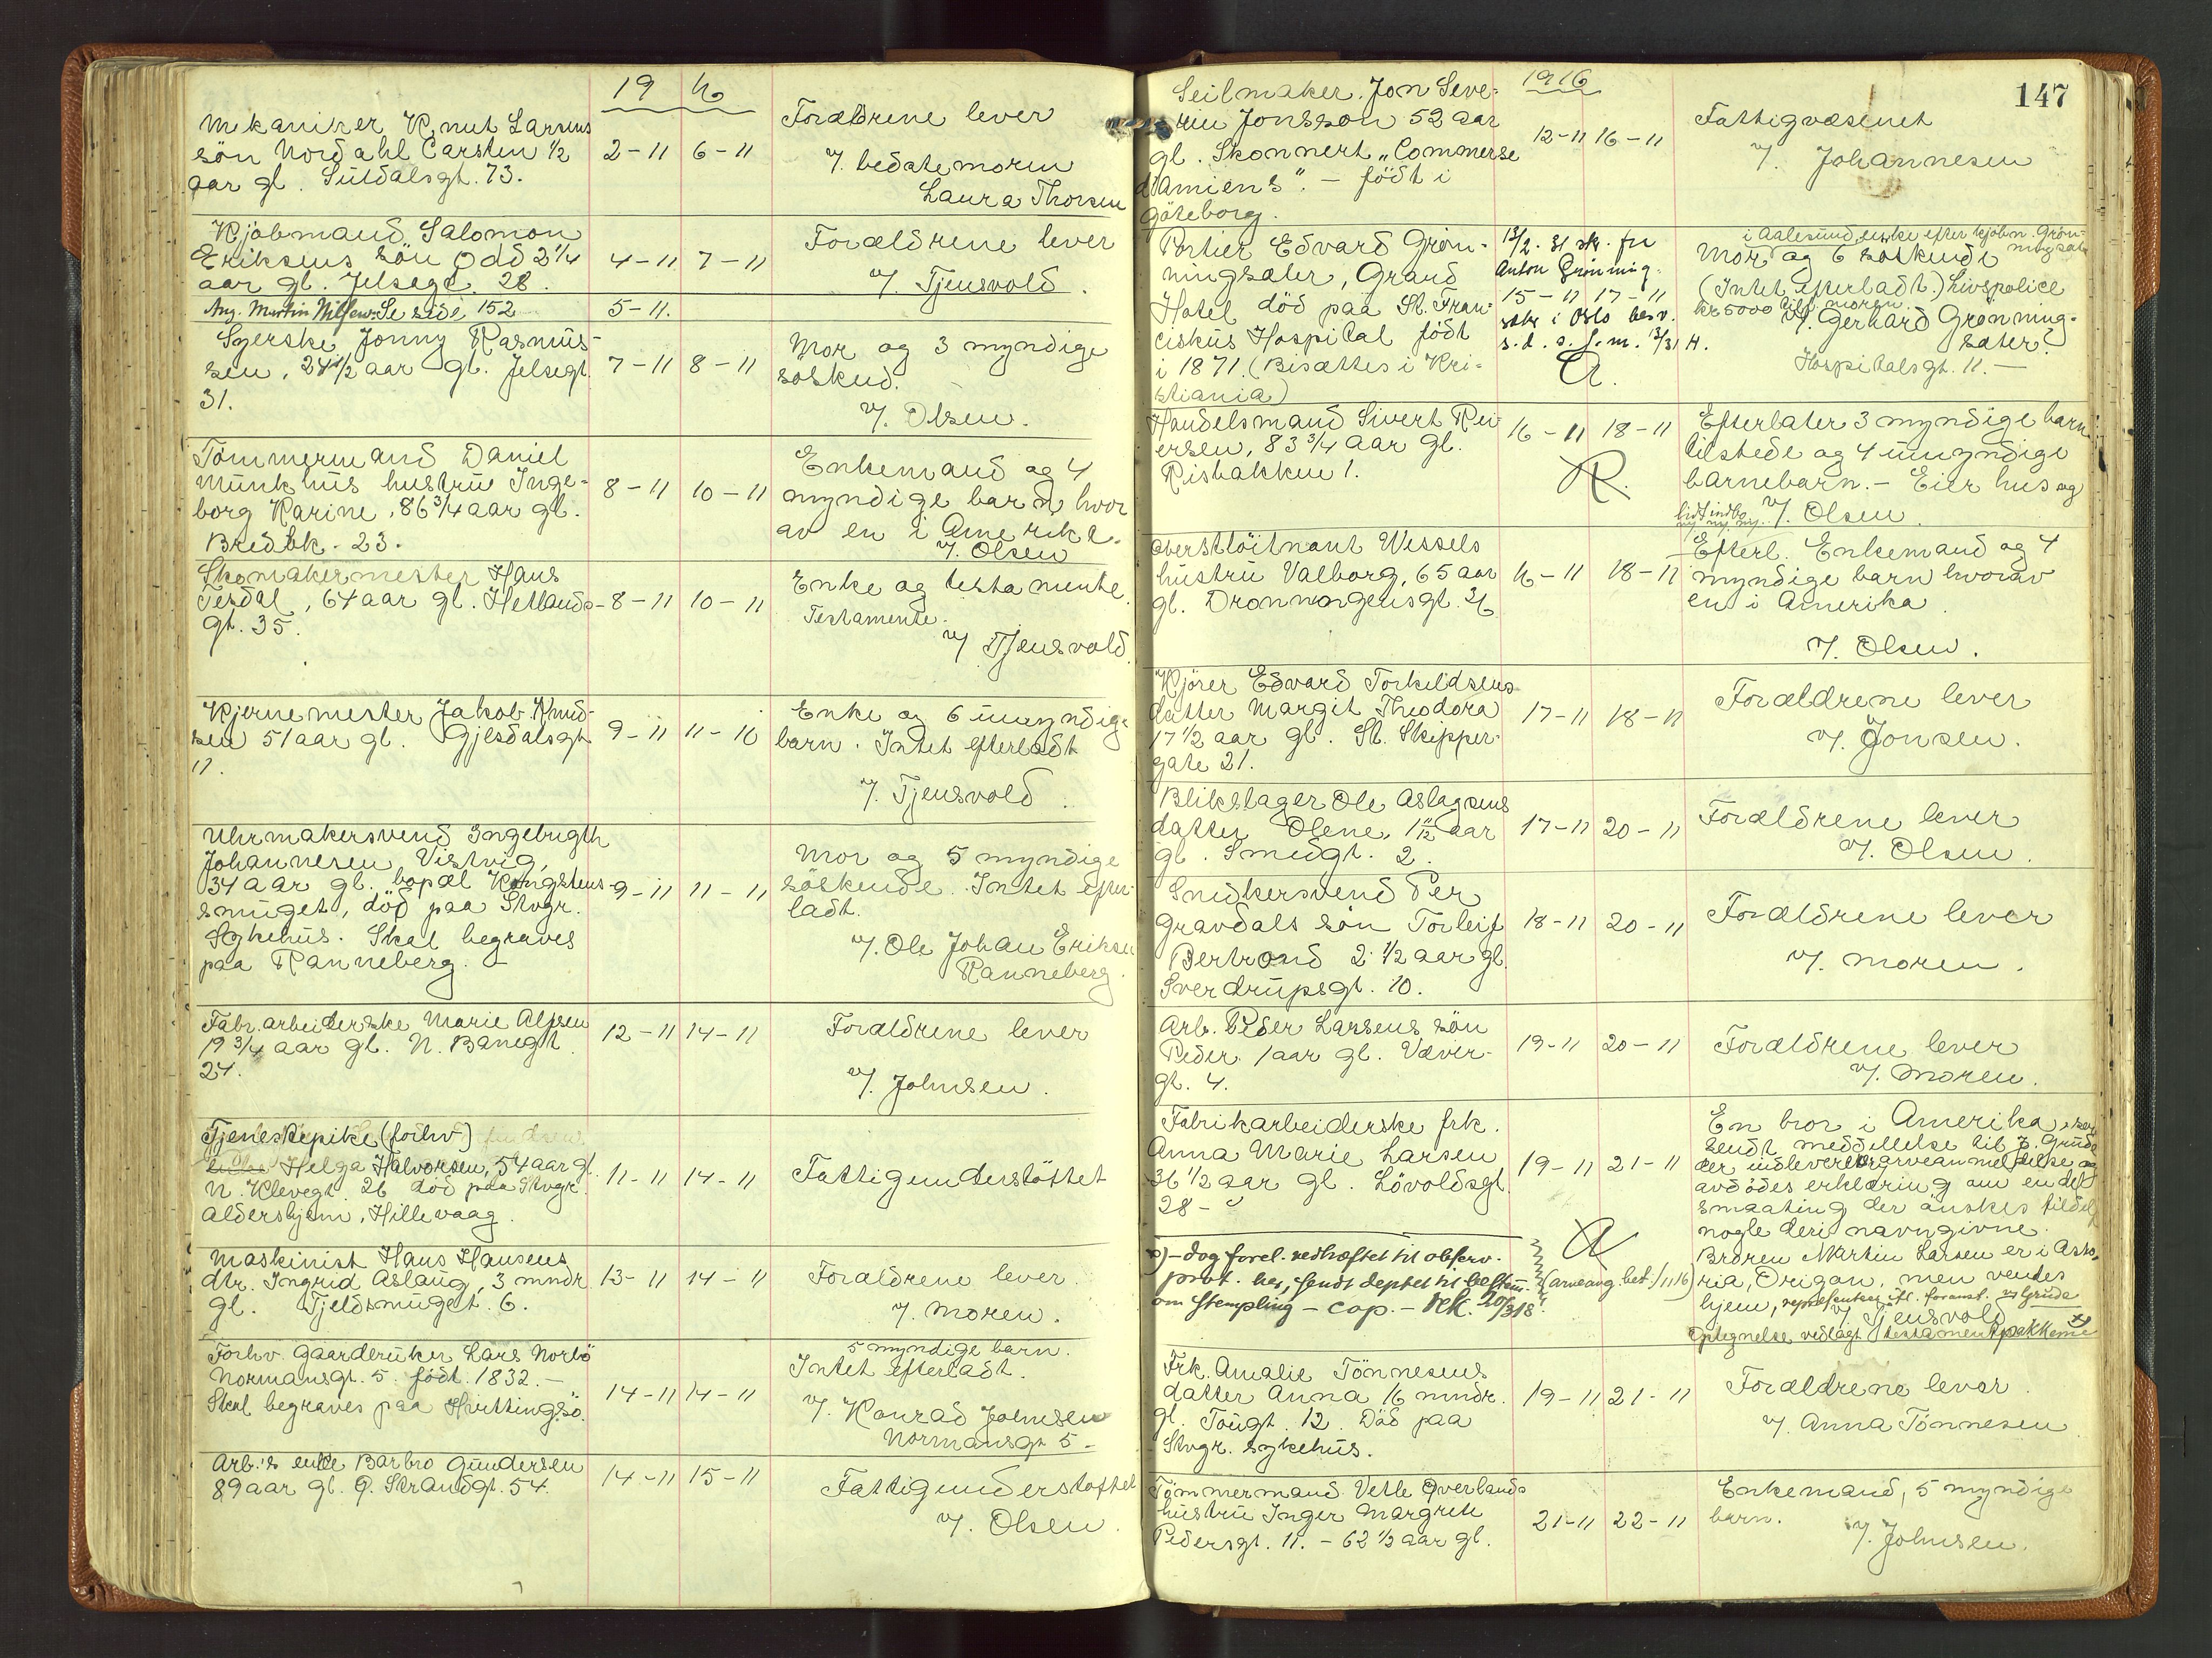 19 16
Mekaniker Knut Larsens
sön Nordahl Carsten 1/2
aar gl. Suldalsgt. 73.
2-11 6-11
Forældrene lever
v/. bedstemoren
Laura Thorsen
Kjøbmand Salomon
Eriksens sön Odd 2 1/4
aar gl. Jelsagt. 28.
4-11 7-11
Forældrene lever
v/. Tjensvold.
Ang. Martin Nilsen: Se side 152
5-11.
Syerske Jonny Rasmus-
sen, 24 1/2 aar gl. Jelsegt.
31.
7-11 8-11
Mor og 3 myndige
søskend.
v/. Olsen.
Tömmermand Daniel
Munkhus hustru Inge-
borg Karine, 86 3/4 aar gl.
Bredbk. 23.
8-11 10-11
Enkemand og 4
myndige barn hvor
av en i Amerika.
v/. Olsen
Skomakermester Hans
Tesdal, 64 aar gl. Hetlands-
gt. 35.
8-11 10-11
Enke og testamente.
Testamente.
v/ Tjensvold.
Kjernemester Jakob Knud-
sen 51 aar gl. Gjesdalsgt
11.
9-11 11-10
Enke og 6 umyndige
barn. Intet efterladt
v/. Tjensvold.
Uhrmakersvend Ingebrigth
Johannesen Vistvig,
34 aar gl. bopæl Kongstens-
smuget, død paa Stvgr.
Sykehus. Skal begraves
paa Ranneberg. -
9-11 11-11
Mor og 5 myndige
söskende. Intet efter-
ladt.
v/. Ole Johan Eriksen
Ranneberg.
Fabr. arbeiderske Marie Alfsen
19 3/4 aar gl. N. Banegt
24.
12-11 14-11
Forældrene lever
v/. Johnsen.
Tjenestepike (forhv)
Helga Halvorsen, 54 aar gl.
N. Klevegt. 26 död paa Stvgr.
Aldershjem, Hillevaag.
11-11 14-11
Fattigunderstöttet
Maskinist Hans Hansens
dtr. Ingrid Aslaug, 3 mndr
gl. Tjeldsmuget. 6.
13-11 14-11
Forældrene lever.
v/. moren.
Forhv. Gaardbruker Lars Norbö
Normansgt. 5. födt. 1832. -
Skal begraves paa Hvittingsö.
14-11 14-11
5 myndige barn.
Intet efterladt.
v/. Konrad Johnsen
Normansgt 5-
Arb.'s enke Barbro Gundersen
89 aar gl. Ø. Strandgt. 54.
14-11 15-11
Fattigunderstøttet
v/. Olsen.
147
1916
Seilmaker. Jon Seve-
rin Jonsson 52 aar
gl. Skonnert "Commerse
d'Amiens". - födt i
Göteborg.
12-11 16-11
Fattigvæsenet
v/. Johannesen
Portier Edvard Grøn-
ningsæter, Grand
Hotel död paa St. Fran-
ciskus Hospital födt
i 1871. (Bisættes i Kri-
stiania)
13/2. 31 skr. fra
Anton Grønning-
15-11 17-11
sætr i Oslo besv.
s.d. s.f.m. 13/31 H.
A.
i Aalesund, enke efter kjøbm. Grøn-
ningsæter
Mor og 6 søskende
(Intet efterladt.) Livspolice
kr 5000 til moren.
v/. Gerhard Grønning-
sæter.
Hospitalsgt. 11. -
Handelsmand Sivert Rei-
ersen, 83 3/4 aar gl.
Risbakken 1.
16-11 18-11
R.
Efterlater 3 myndige barn
tilstede og 4 umyndige
barnebarn. - Eier hus og
lidt indbo
v/. Olsen.
Oberstlöitnant Wessels
hustru Valborg, 65 aar
gl. Dronningensgt. 26
16-11 18-11
Efterl. Enkemand og 4
myndige barn hvorav
en i Amerika.
v/. Olsen.
Kjörer Edvard Torkildsens
datter Margit Theodora
17 1/2 aar gl. St. Skipper-
gate 21.
17-11 18-11
Forældrene lever
v/. Jonsen.
Blikslager Ole Aslagsens
datter Olene, 1 11/12 aar
gl. Smedgt. 2.
17-11 20-11
Forældrene lever
v/. Olsen.
Snedkersvend Per
Gravdals sön Torleif
Bertrand 2 1/2 aar gl.
Sverdrupsgt. 10.
18-11 20-11
Forældrene lever
v/. moren.
Arb. Peder Larsens sön
Peder. 1 aar gl. Væver-
gt. 4.
19-11 20-11
Forældrene lever
v/. moren.
Fabrikarbeiderske frk.
Anna Marie Larsen
36 1/2 aar gl. Lövoldsgt.
28-
19-11 21-11
A
(arveang. bet. 1/11 16)
En bror i Amerika,
sendt meddelelse til J. Grude
der indleverer arveanmeldelse og
avdödes erklæring om en del
smaating der önskes tildelt
nogle deri navngivne.
Broren Martin Larsen er i Asto-
ria, Origon, men ventes
hjem, v/ Grude
v/ Tjensvold
Optegnelse vedlagt testamentpakkene
x) - dog forel. vedhæftet til observ.
prot. her, sendt deptet til bestem.
om stempling - cop. - Rek. 20/3 18.
Frk. Amalie Tönnesens
datter Anna 16 mndr.
gl. Tougt. 12. Död paa
Stvgr. sykehus.
19-11 21-11
Forældrene lever.
v/ Anna Tönnesen
Tömmermand Vetle Överlands
hustru Inger Margrete
Pedersgt. 11. - 62 1/2 aar gl.
21-11 22-11
Enkemand, 5 myndige
barn.
v/. Johnsen.